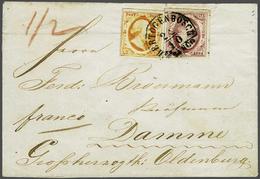 1/2
HERTOGENBOSCH
Herrn
Ferd: Brömmann
Kaufmann
franco
Damme
Großherzogth. Oldenburg